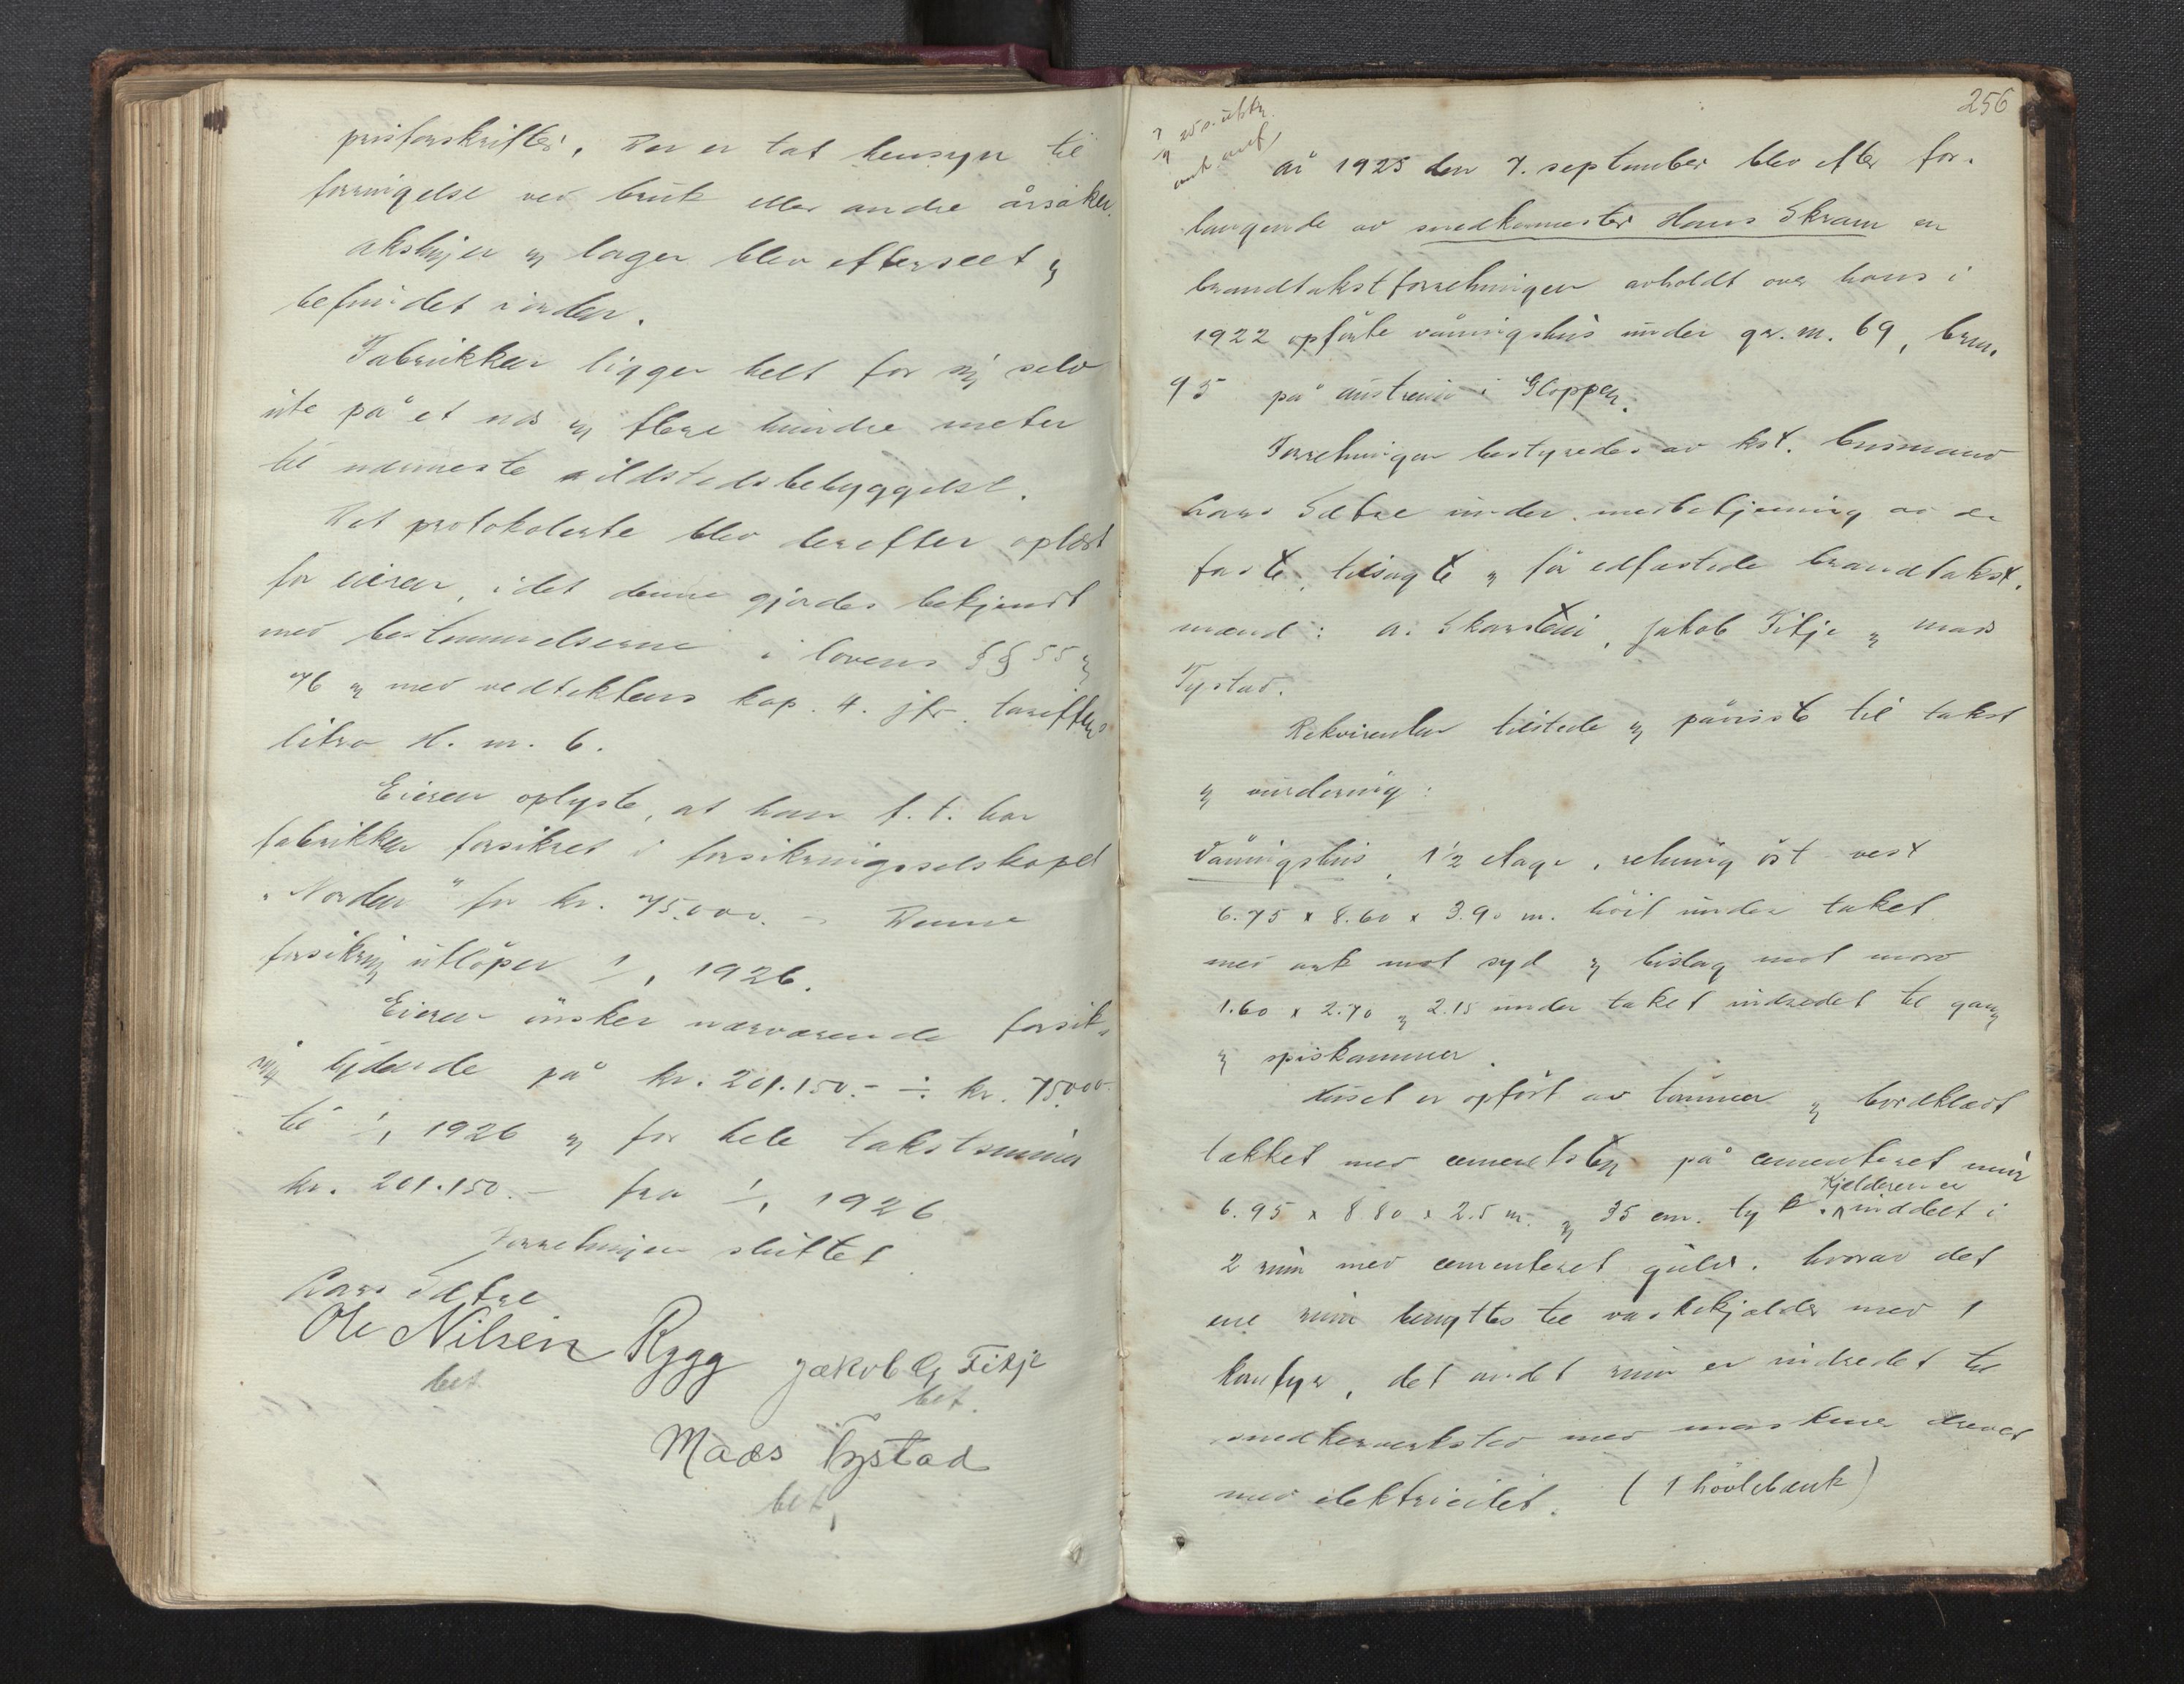 prisforskrifter. Der er tat hensyn til
forringelse ved bruk eller andre årsaker.
akslinger og lager blev efterseet og
befundet i orden.
Fabrikken ligger helt for sig selv
ute på et nes og flere hundre meter
til nærmeste ildstedsbebyggelse.
Det protokolerte blev derefter oplæst
for eieren, idet denne gjordes bekjendt
med bestemmelserne i lovens §§ 55 og
76 og med vedtektens kap. 4. jfr. tariffens
litra H. nr. 6.
Eieren oplyste, at han f. t. har
fabrikken forsikret i forsikringsselskapet
"Norden" for kr. 75.000.- Denne
forsikring utløper 1/1 1926.
Eieren ønsker nærværende forsik-
ring lydende på kr. 201.150.- ÷ kr. 75000.
til 1/1 1926 og for hele takstsummen
kr. 201.150.- fra 1/1 1926
Forretningen sluttet
Lars Sætre
Ole Nilsen Rygg Jakob G Fitje
bet. bet.
Mads Tystad
bet.
256
25 s. utskr.
År 1925 den 7. september blev efter for-
langende av snedkermester Hans Skram en
brandtakstforretningen avholdt over hans i
1922 opførte våningshus under gr. nr. 69, brnr.
95 på austrein i Gloppen.
Forretningen bestyredes av kst. lensmand
Lars Sætre under medbetjening av de
faste, tilsagte og før edfæstede brandtakst-
mænd: A. Skarstein, Jakob Fitje og Mads
Tystad.
Rekvirenten tilstede og påviste til takst
og vurdering:
Våningshus, 1½ etage, retning øst-vest
6.75 x 8.60 x 3.90 m. høit under taket
med ark mot syd og bislag mot nord
1.60 x 2.70 og 2.15 under taket indredet til gang
og spiskammer.
Huset er opført av tømmer og bordklædt
tækket med cementsten på cementeret mur
6.95 x 8.80 x 2.5 m. og 35 cm. tyk. Kjelderen er inddelt i
2 rum med cementeret gulv. hvorav det
ene rum benyttes til vaskekjælder med 1
komfyr, det andet rum er indredet til
snedkerverksted med maskiner drevet
med elektricitet. (1 høvlebænk)